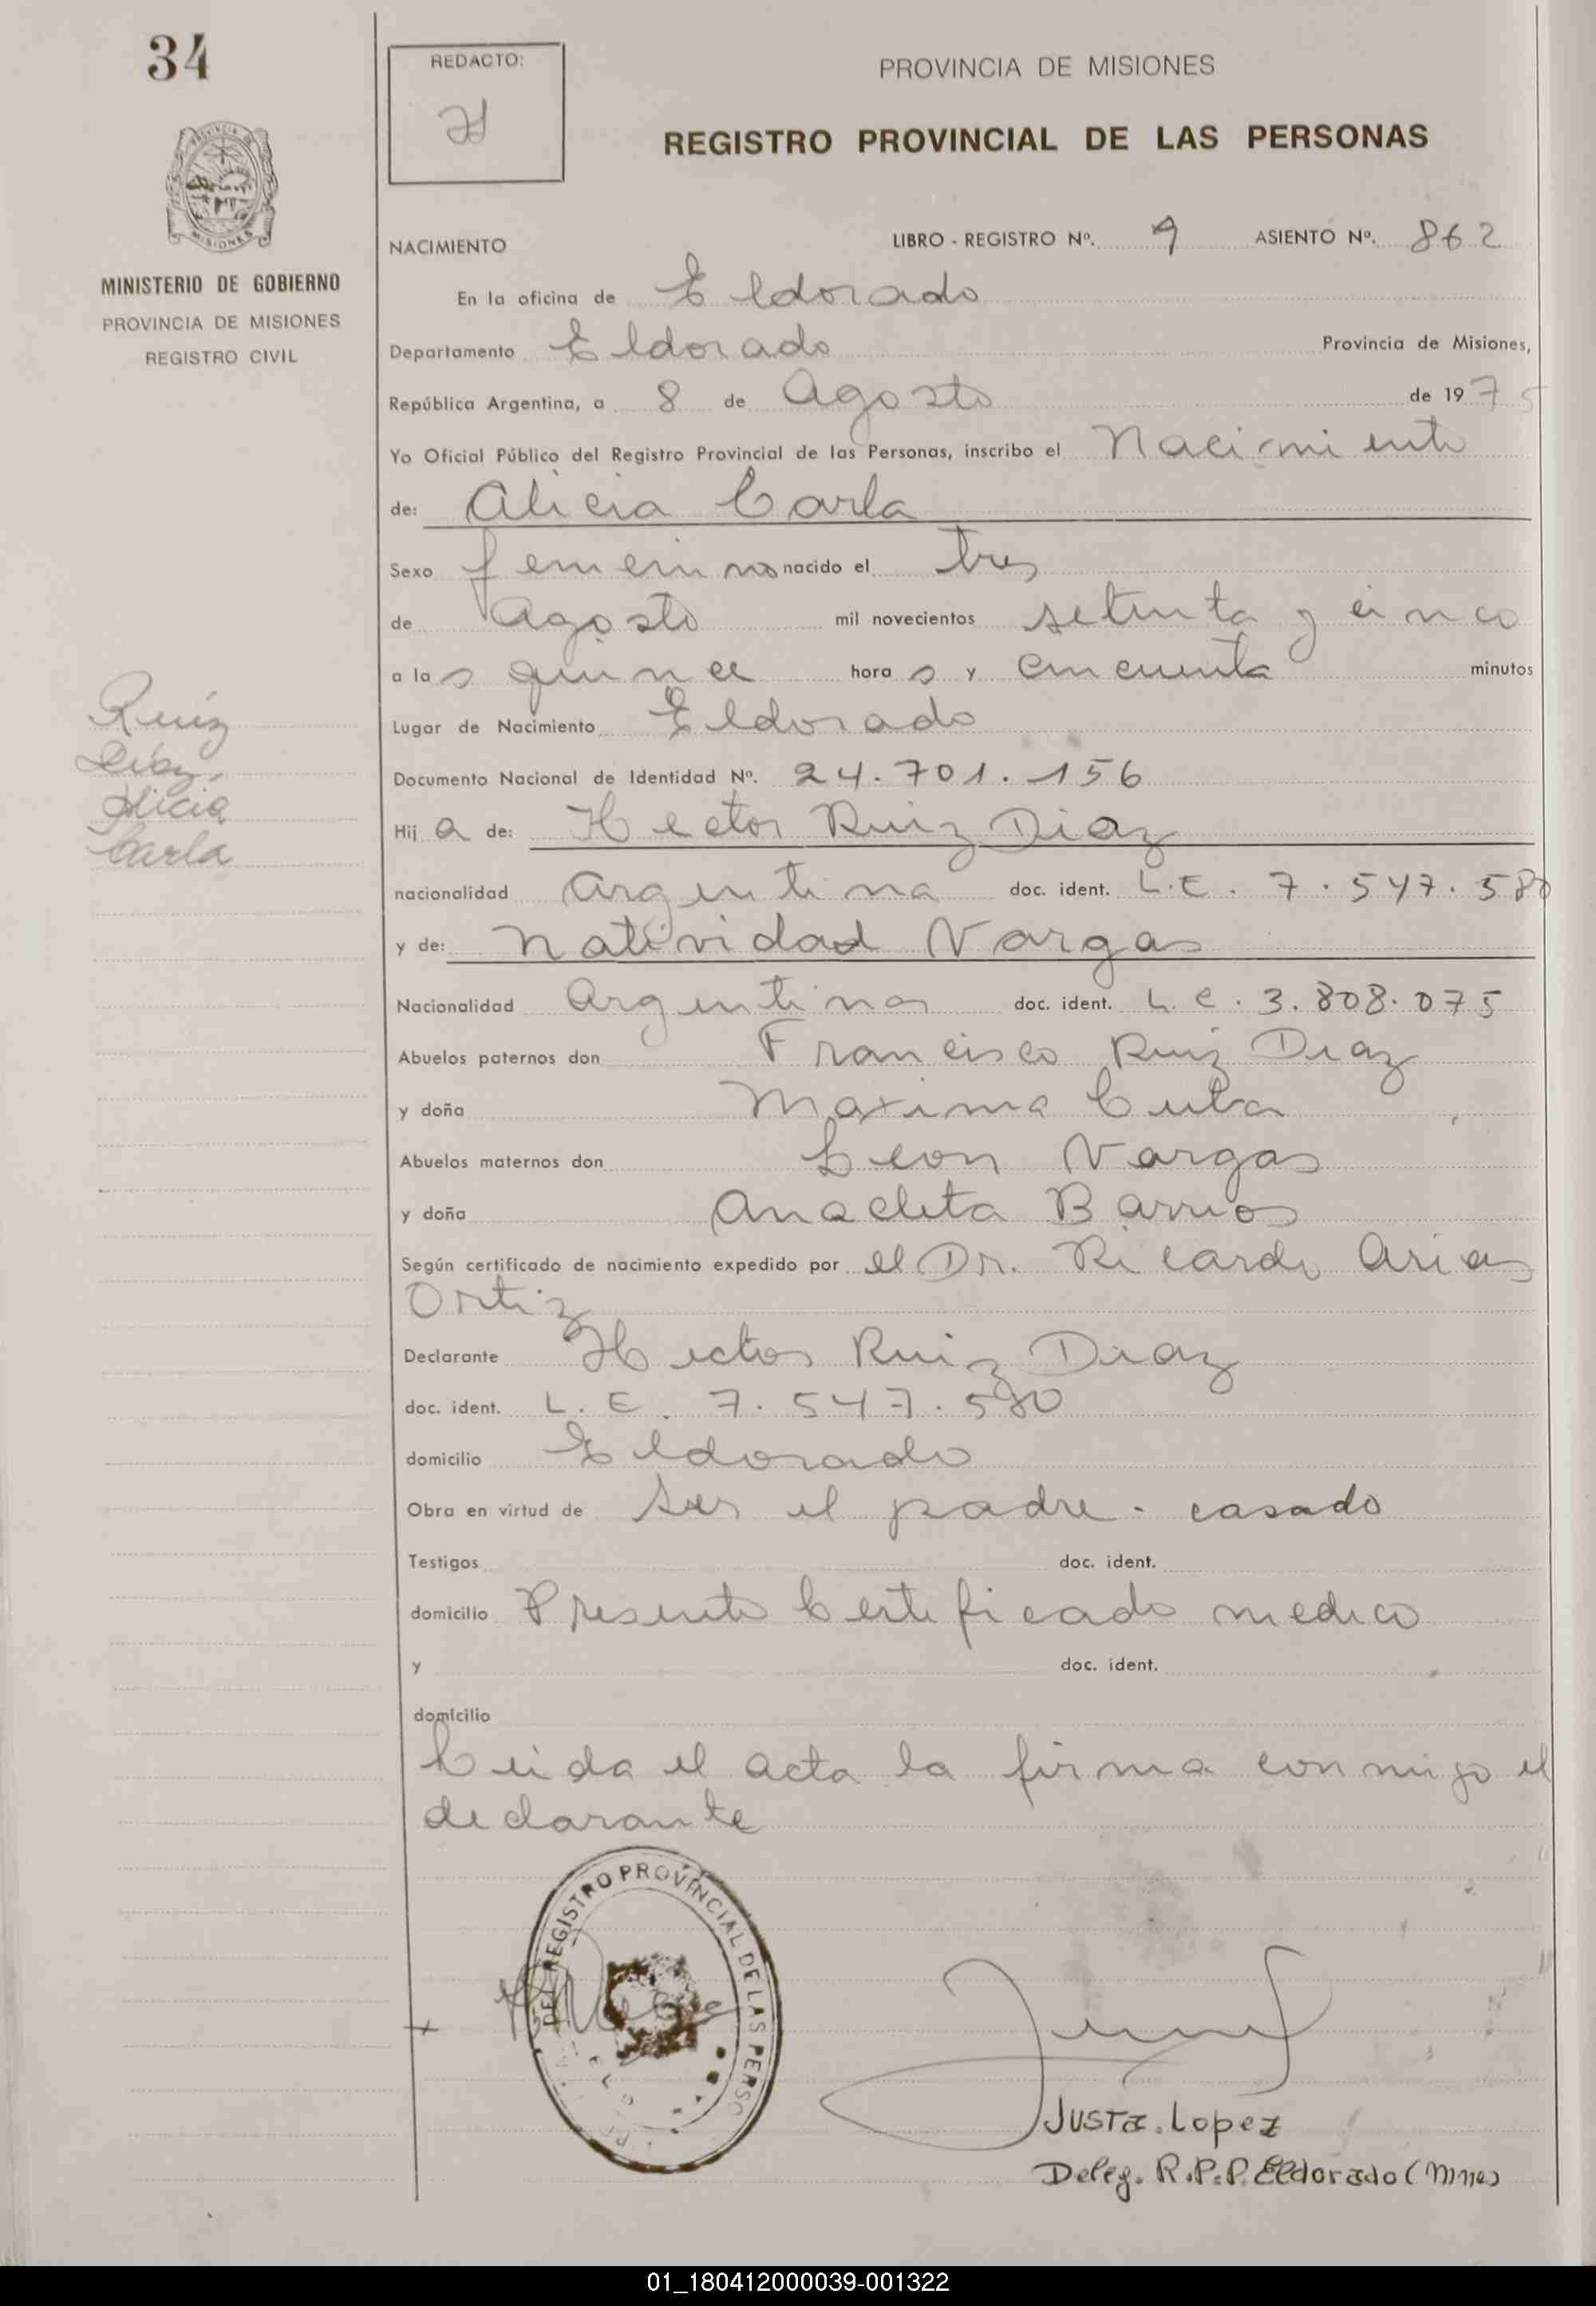 34
REDACTO:
PROVINCIA DE MISIONES
REGISTRO PROVINCIAL DE LAS PERSONAS
PROVINCIA DE
MISIONES
MINISTERIO DE GOBIERNO
PROVINCIA DE MISIONES
REGISTRO CIVIL
NACIMIENTO LIBRO - REGISTRO Nº. 9 ASIENTO Nº. 862
En la oficina de Eldorado
Departamento Eldorado Provincia de Misiones,
República Argentina, a 8 de Agosto de 1975
Yo Oficial Público del Registro Provincial de las Personas, inscribo el Nacimiento
de: Alicia Carla
Sexo femenino nacido el tres
de Agosto mil novecientos setenta y cinco
a las quince horas y cincuenta minutos
Lugar de Nacimiento Eldorado
Ruiz
Diaz,
Alicia
Carla
Documento Nacional de Identidad Nº. 24.701.156
Hija de: Hector Ruiz Diaz
nacionalidad argentina doc. ident. L.E. 7.547.580
y de: Natividad Vargas
Nacionalidad argentina doc. ident. L.C. 3.808.075
Abuelos paternos don Francisco Ruiz Diaz
y doña Maxima Cuba
Abuelos maternos don Leon Vargas
y doña Anacleta Barrios
Según certificado de nacimiento expedido por el Dr. Ricardo Arias
Ortiz
Declarante Hector Ruiz Diaz
doc. ident. L.E. 7.547.580
domicilio Eldorado
Obra en virtud de ser el padre - casado
Testigos doc. ident.
domicilio Presento Certificado medico
y doc. ident.
domicilio
Leida el acta la firma conmigo el
declarante
DEL REGISTRO PROVINCIAL DE LAS PERSO
Justa. Lopez
Deleg. R.P.P. Eldorado (Mnes)
01_180412000039-001322